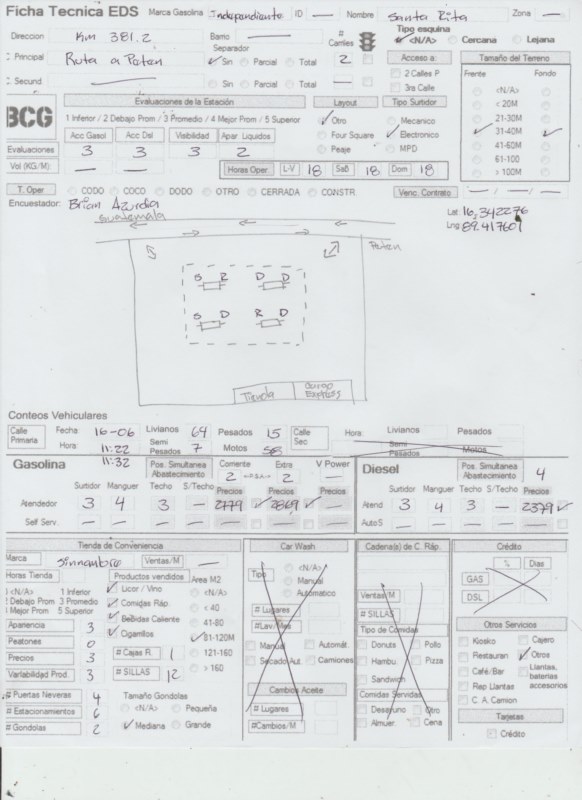 Ficha Tecnica EDS Marca Gasolina Independiente ID — Nombre Santa Rita Zona —
Direccion Km 381.2 Barrio — # Carriles Tipo esquina
Separador <N/A> Cercana Lejana
Principal Ruta a Peten Sin Parcial Total 2 Acceso a: Tamaño del Terreno
Secund — Sin Parcial Total 2 Calles P Frente Fondo
3ra Calle <N/A>
BCG Evaluaciones de la Estación Layout Tipo Surtidor < 20M
1 Inferior / 2 Debajo Prom / 3 Promedio / 4 Mejor Prom / 5 Superior Otro Mecanico 21-30M
Acc Gasol Acc Dsl Visibilidad Apar Liquidos Four Square Electronico 31-40M
Evaluaciones 3 3 3 2 Peaje MPD 41-60M
Vol (KG/M) — — Horas Oper. L-V 18 Sab 18 Dom 18 61-100
> 100M
T. Oper CODO COCO DODO OTRO CERRADA CONSTR. Venc. Contrato —/—/—
Encuestador: Brian Azurdia
Lat 16,342276
Lng 89.417601
Guatemala
Peten
S R D D
S D R D
Tienda
Conteos Vehiculares
Calle Primaria Fecha 16-06 Livianos 64 Pesados 15 Calle Sec Hora Livianos Pesados
Hora 11:22 Semi Pesados 7 Motos 58 Semi Pesados Motos
11:32
Gasolina Pos. Simultanea Abastecimiento Corriente 2 Extra 2 V Power — Diesel Pos. Simultanea Abastecimiento 4
Surtidor Manguer Techo S/Techo Precios Precios Precios Surtidor Manguer Techo S/Techo Precios
Atendedor 3 4 3 — 2779 2869 — Atend 3 4 3 — 2379
Self Serv. — — — — — — — Auto S — — — — —
Tienda de Conveniencia Car Wash Cadena(s) de C. Ráp. Crédito
Marca sinnombre Ventas/M — % Dias
Horas Tienda Productos vendidos Area M2 Tipo <N/A> Manual Automatico GAS
<N/A> 1 Inferior Licor / Vino <N/A> Ventas/M DSL
2 Debajo Prom 3 Promedio Comidas Ráp < 40 # Lugares # SILLAS
4 Mejor Prom 5 Superior Bebidas Caliente 41-80 #Lav/Mes Tipo de Comidas Otros Servicios
Apariencia 3 Cigarrillos 81-120M Manual Automát. Donuts Pollo Kiosko Cajero
Peatones 0 # Cajas R. 1 121-160 Secado Aut. Camiones Hambu Pizza Restauran Otros
Precios 3 # SILLAS 12 > 160 Sandwich Café/Bar Llantas, baterias accesorios
Variabilidad Prod. 3 Cambios Aceite Comidas Servidas Rep Llantas
# Puertas Neveras 4 Tamaño Gondolas # Lugares Desayuno Otro C. A. Camion
# Estacionamientos 6 <N/A> Pequeña #Cambios/M Almuer. Cena Tarjetas
# Gondolas 2 Mediana Grande Crédito